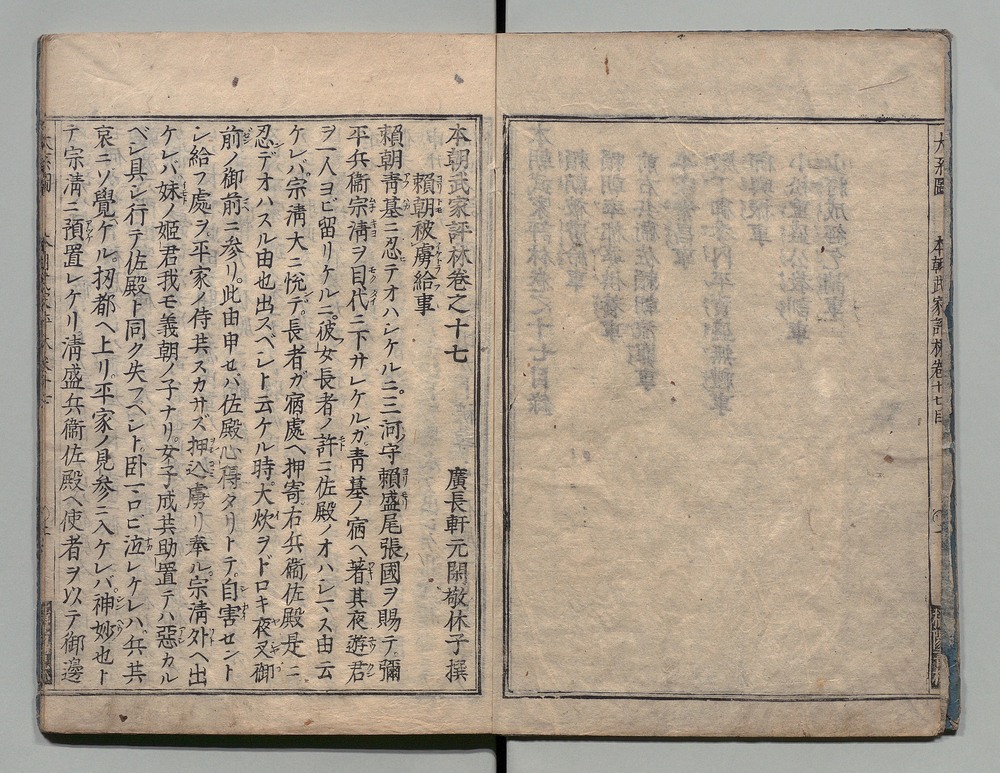 本朝武家評林卷十七目
本朝武家評林卷之十七
廣長軒元閑敬休子撰
賴朝被虜給事
賴朝青墓ニ忍テオハシケルニ三河守賴盛尾張國ヲ賜テ彌
平兵衞宗淸ヲ目代ニ下サレケルガ青墓ノ宿ヘ著其夜遊君
ヲ一人ヨビ留リケルニ彼女長者ノ許ニ佐殿ノオハシマス由云
ケレバ宗淸大ニ悦デ長者ガ宿處ヘ押寄右兵衞佐殿是ニ
忍デオハスル由也出スベシト云ケル時大炊ヲドロキ夜叉御
前ノ御前ニ参リ此由申セバ佐殿心得タリトテ自害セント
シ給フ處ヲ平家ノ侍共スカサズ押込虜リ奉ル宗淸外ヘ出
ケレバ妹ノ姫君我モ義朝ノ子ナリ女子成共助置テハ惡カル
ベシ具シ行テ佐殿ト同ク失フベシト臥マロビ泣レケレハ兵共
哀ニソ覺ケル扨都ヘ上リ平家ノ見参ニ入ケレバ神妙也ト
テ宗淸ニ預置レケリ淸盛兵衞佐殿ヘ使者ヲ以テ御邊